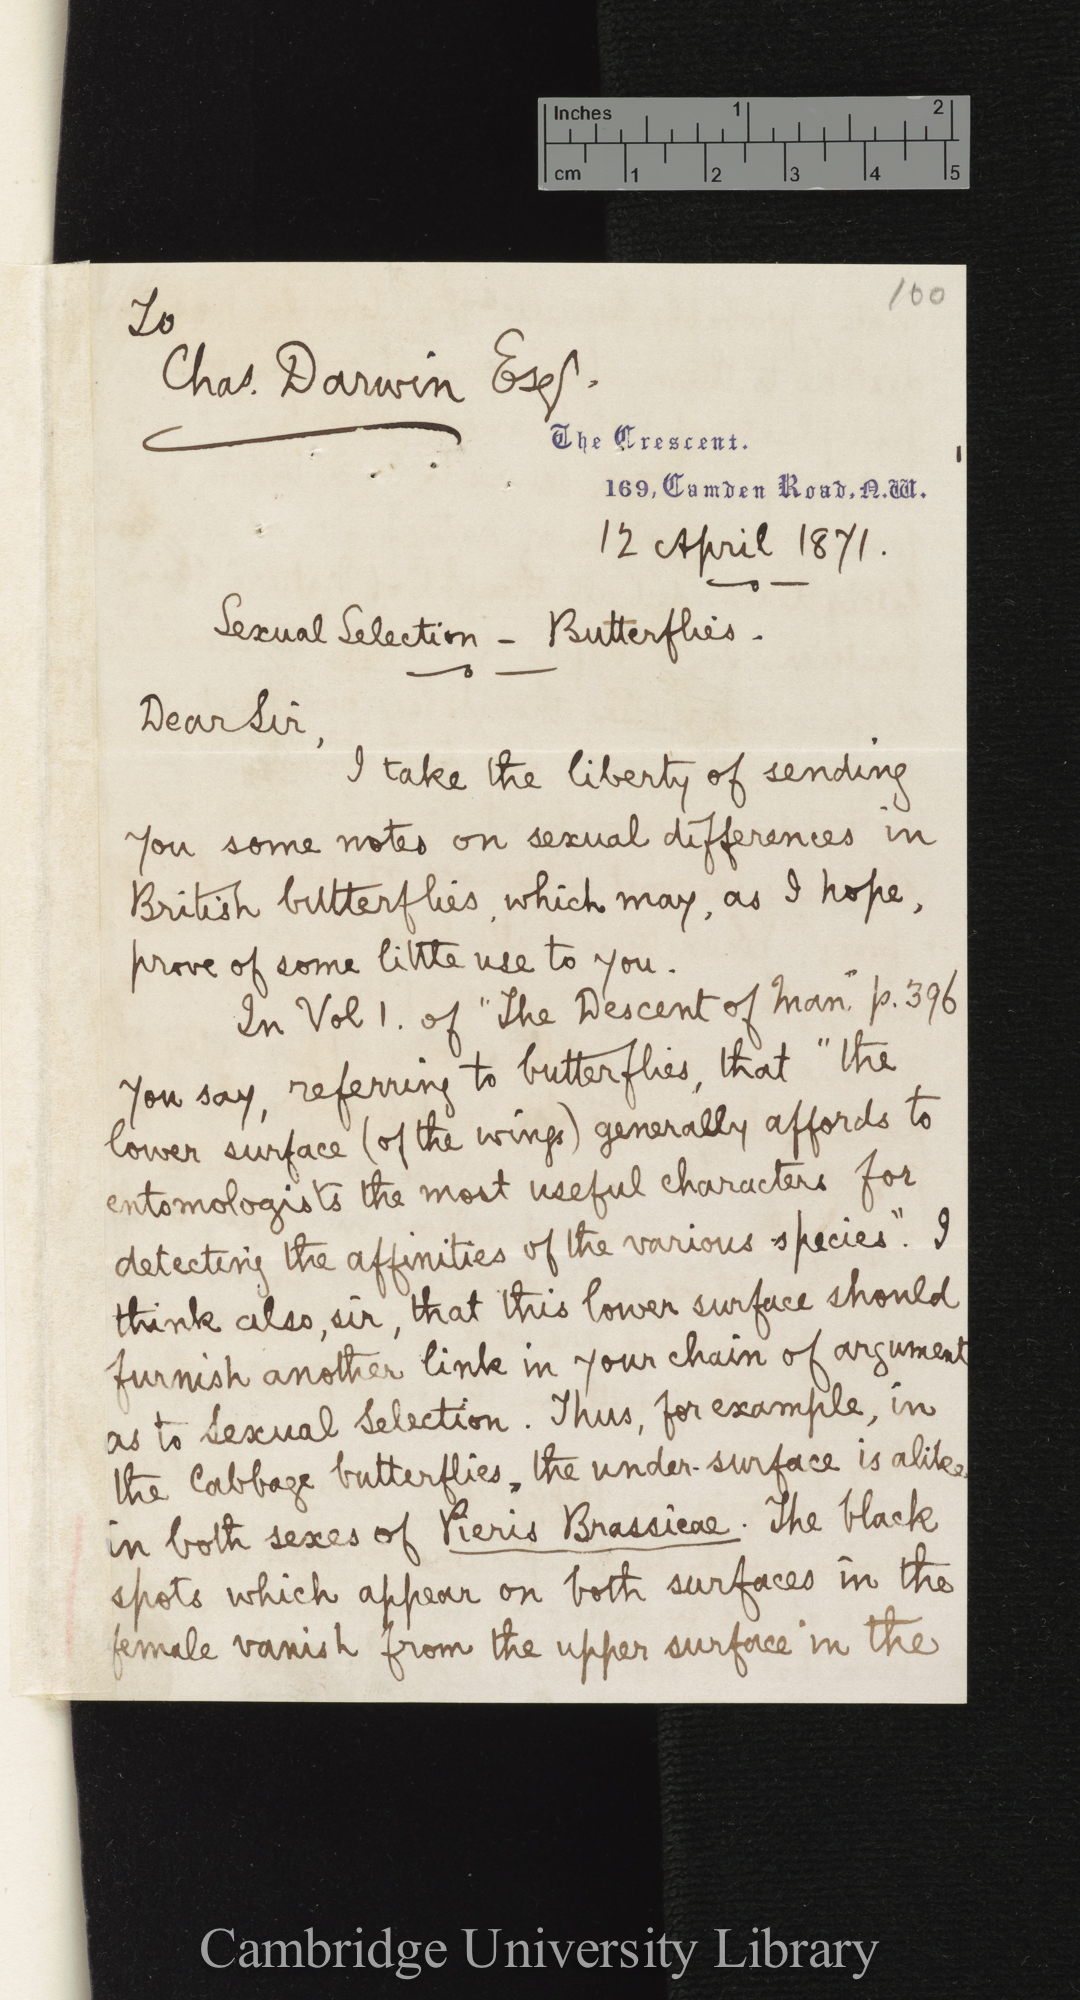 Inches 1 2
cm 1 2 3 4 5
100
To
Chas. Darwin Esqr.
The Crescent.
169, Camden Road, N.W.
12 April 1871.
Sexual Selection – Butterflies.
Dear Sir,
I take the liberty of sending
you some notes on sexual differences in
British butterflies, which may, as I hope,
prove of some little use to you.
In Vol 1. of "The Descent of Man" p. 396
you say, referring to butterflies, that "the
lower surface (of the wings) generally affords to
entomologists the most useful characters for
detecting the affinities of the various species". I
think also, sir, that this lower surface should
furnish another link in your chain of argument
as to Sexual Selection. Thus, for example, in
the Cabbage butterflies, the under-surface is alike
in both sexes of Pieris Brassicae. The black
spots which appear on both surfaces in the
female vanish from the upper surface in the
Cambridge University Library